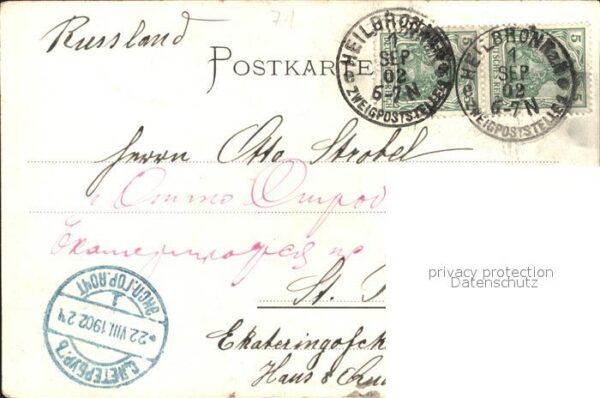 71
Russland
POSTKARTE
HEILBRONN
1
SEP
02
6-7N
ZWEIGPOSTSTELLE
HEILBRONN
1
SEP
02
6-7N
ZWEIGPOSTSTELLE
5
5
Herrn Otto Strobel
Отто
privacy protection
Datenschutz
St.
Ekateringofsk
Haus 8
С.ПЕТЕРБУРГЪ
22 VIII.1902 24
1
ЭКСП.ГОР.ПОЧТ